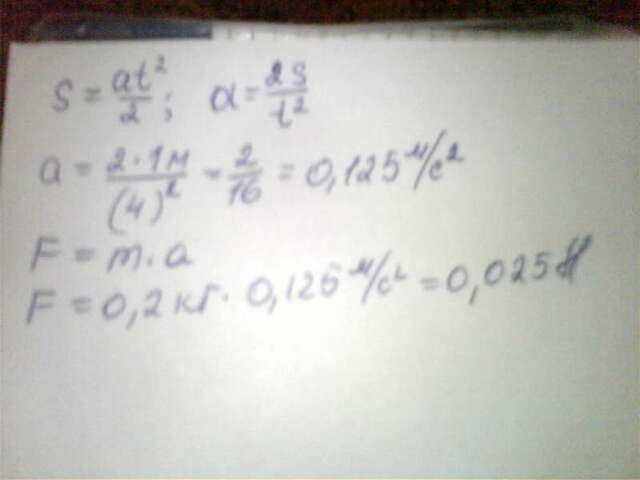 S = at²/2; a = 2S/t²
a = 2·1м/(4)² = 2/16 = 0,125 м/с²
F = m·a
F = 0,2 кг · 0,125 м/с² = 0,025 Н